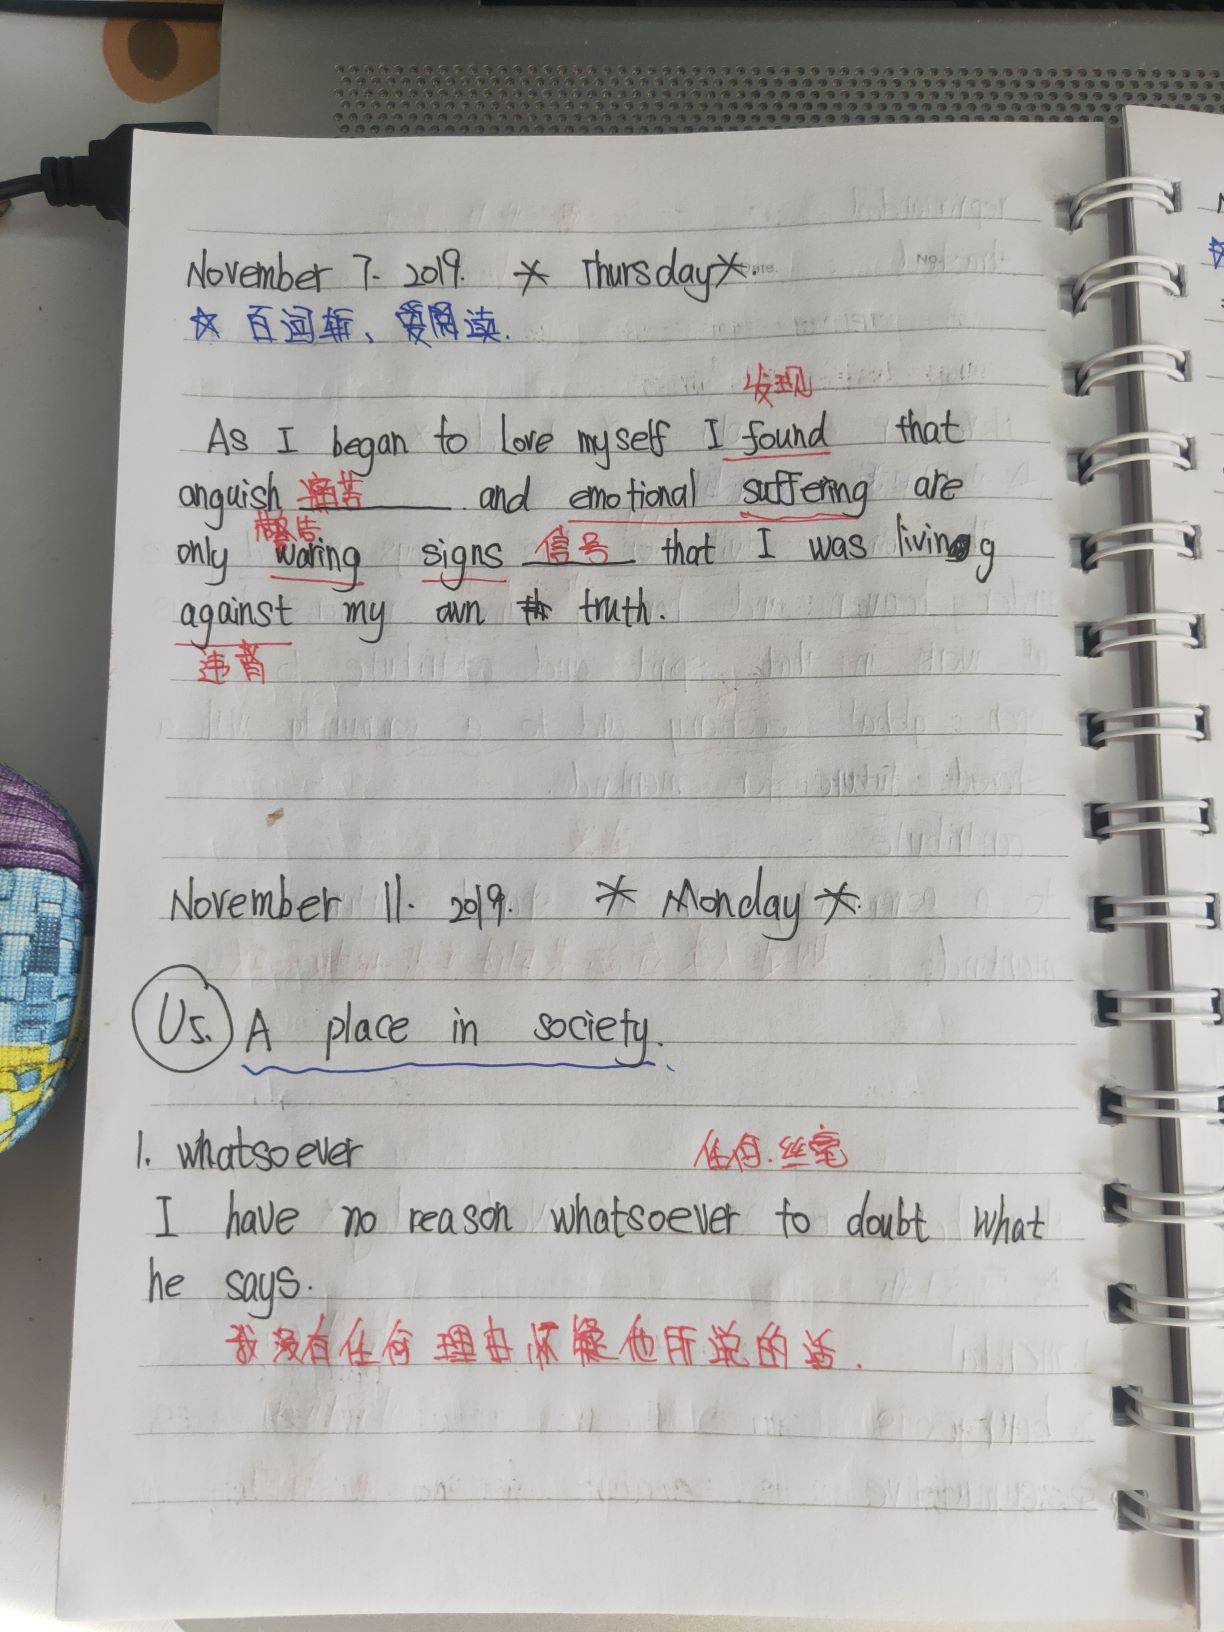 November 7. 2019. * Thursday *.
☆ 百词斩、爱阅读.
发现
As I began to love myself I found that
anguish 痛苦 and emotional suffering are
警告
only waring signs 信号 that I was living
against my own truth.
违背
November 11. 2019. * Monday *.
U5. A place in society.
1. whatsoever 任何.丝毫
I have no reason whatsoever to doubt what
he says.
我没有任何理由怀疑他所说的话.